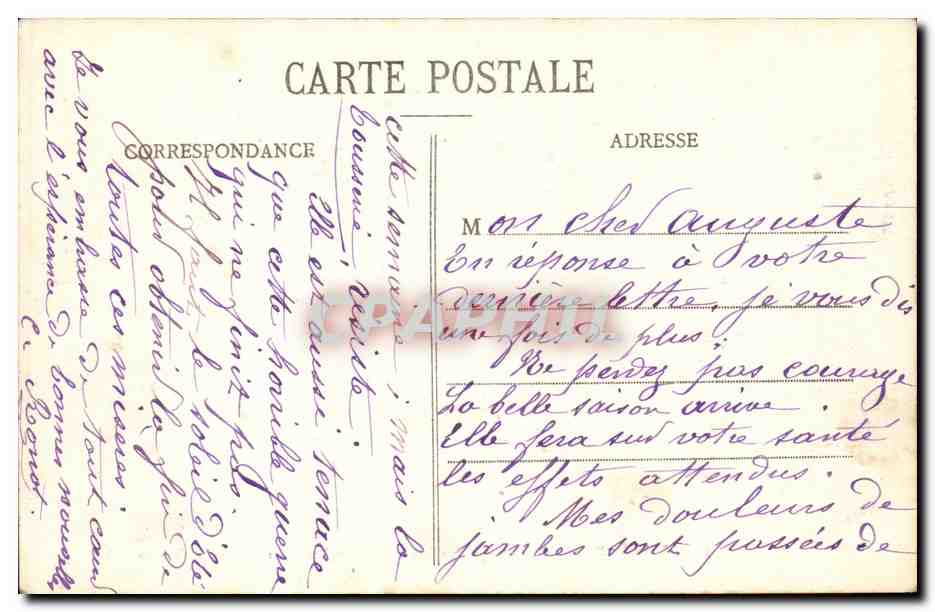 CARTE POSTALE
CORRESPONDANCE
ADRESSE
Mon cher Auguste
En réponse à votre
dernière lettre, je vous dis
une fois de plus :
Ne perdez pas courage
La belle saison arrive.
Elle fera sur votre santé
les effets attendus.
Mes douleurs de
jambes sont passées de
cette semaine, mais la
tousserie, résiste.
Elle est aussi tenace
que cette horrible guerre
qui ne finit pas
Il faut le soleil d'été
pour obtenir la fin de
toutes ces misères
Je vous embrasse de tout cœur
avec l'espérance de bonnes nouvelles
CPAPHIL